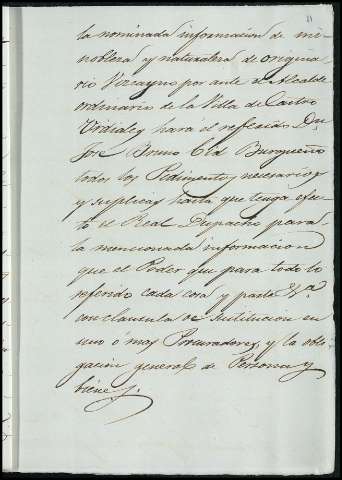 11
la nominada informacion de mi
nobleza y naturaleza de origina
rio Vizcayno por ante el Alcalde
ordinario de la Villa de Castro
Urdiales hará el refferido Dn
José Bruno Cid Burgueño
todos los Pedimentos necesarios
y suplicas hasta que tenga efec
to el Real Despacho para
la mencionada informacion
que el Poder que para todo lo
referido cada cosa y parte &a
con clausula de sustitucion en
uno ó mas Procuradores, y la obli
gacion general de Persona y
biene s.